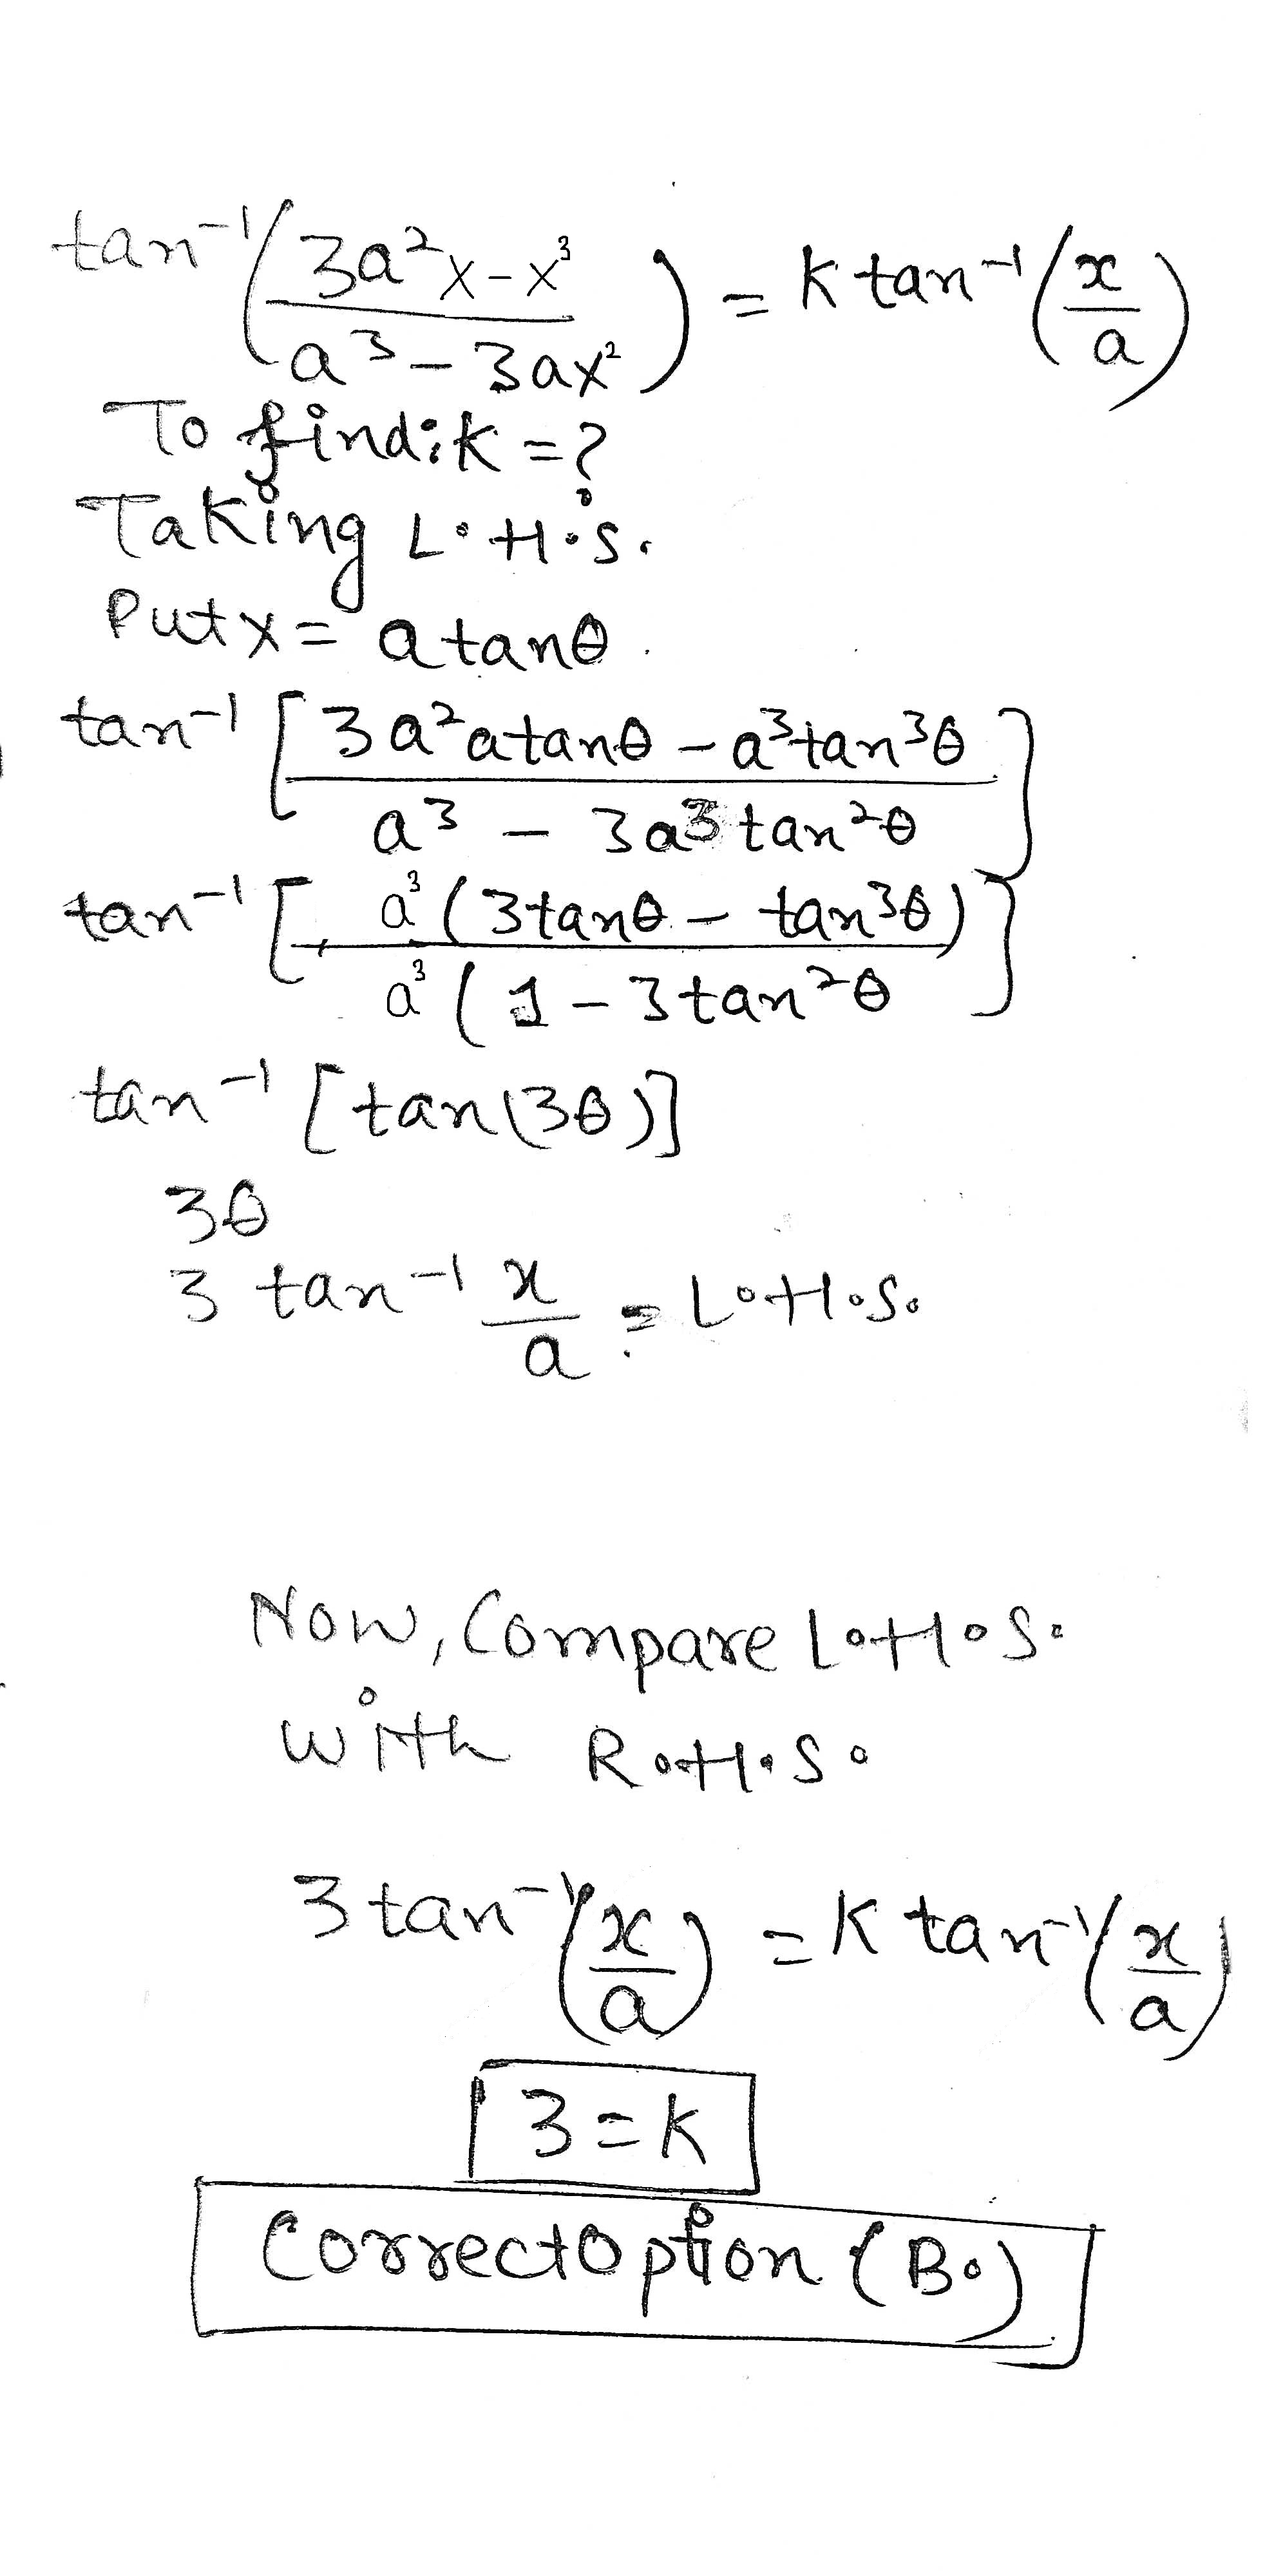 tan⁻¹(3a²x-x³ / a³-3ax²) = K tan⁻¹(x/a)
To find: K = ?
Taking L.H.S.
Put x = a tanθ.
tan⁻¹[3a²atanθ - a³tan³θ / a³ - 3a³tan²θ]
tan⁻¹[a³(3tanθ - tan³θ) / a³(1-3tan²θ]
tan⁻¹[tan(3θ)]
3θ
3 tan⁻¹ x/a = L.H.S.
Now, Compare L.H.S.
with R.H.S.
3 tan⁻¹(x/a) = K tan⁻¹(x/a)
3 = K
Correct Option (B.)